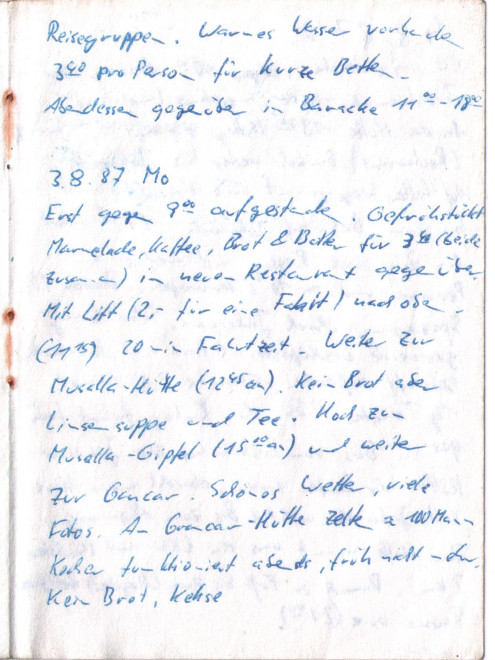 Reisegruppen. Warmes Wasser vorhanden
3,50 pro Person für kurze Betten.
Abendessen gegenüber in Baracke 11⁰⁰-18⁰⁰
3.8.87 Mo
Erst gegen 9⁰⁰ aufgestanden. Gefrühstückt
Marmelade, Kaffee, Brot & Butter für (beide
zusammen) in neuem Restaurant gegenüber.
Mit Lift (2,- für eine Fahrt) nach oben.
(11¹⁵) 20 min Fahrtzeit. Weiter zur
Musalla-Hütte (12⁴⁵ an). Kein Brot aber
Linsensuppe und Tee. Hoch zum
Musalla-Gipfel (15⁰⁰ an) und weiter
zur Grancar. Schönes Wetter, viele
Fotos. An Grancar-Hütte Zelte ≈ 100 Mann
Kocher funktioniert abends, früh nicht mehr.
Kein Brot, Kekse